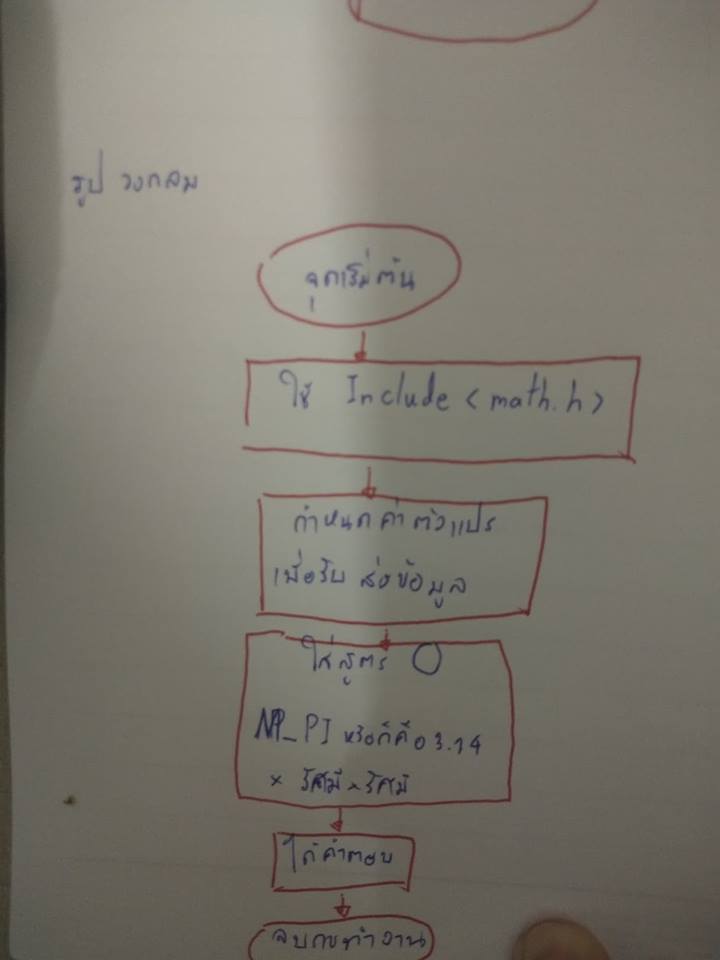 รูป วงกลม
จุดเริ่มต้น
ใช้ Include <math.h>
กำหนดค่าตัวแปร
เพื่อรับ ส่งข้อมูล
ใส่สูตร
_PI หรือก็คือ 3.14
× รัศมี × รัศมี
ได้คำตอบ
จบการทำงาน